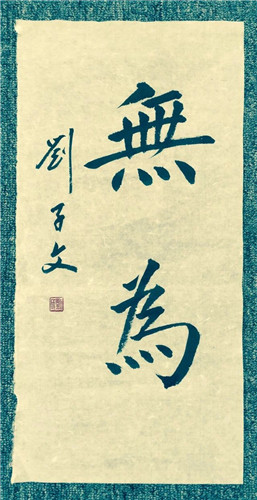 無為
劉子文